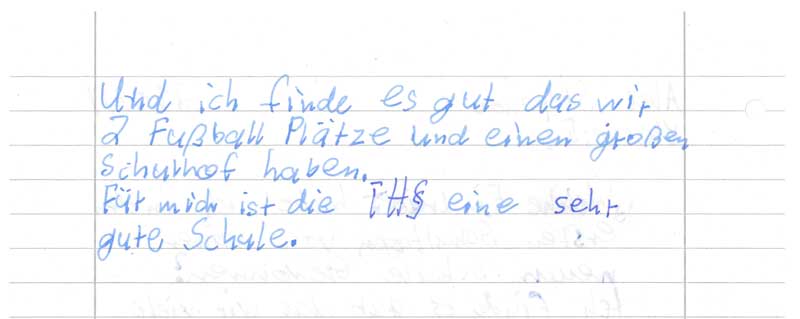 Und ich finde es gut das wir
2 Fußball Plätze und einen großen
Schulhof haben.
Für mich ist die THS eine sehr
gute Schule.